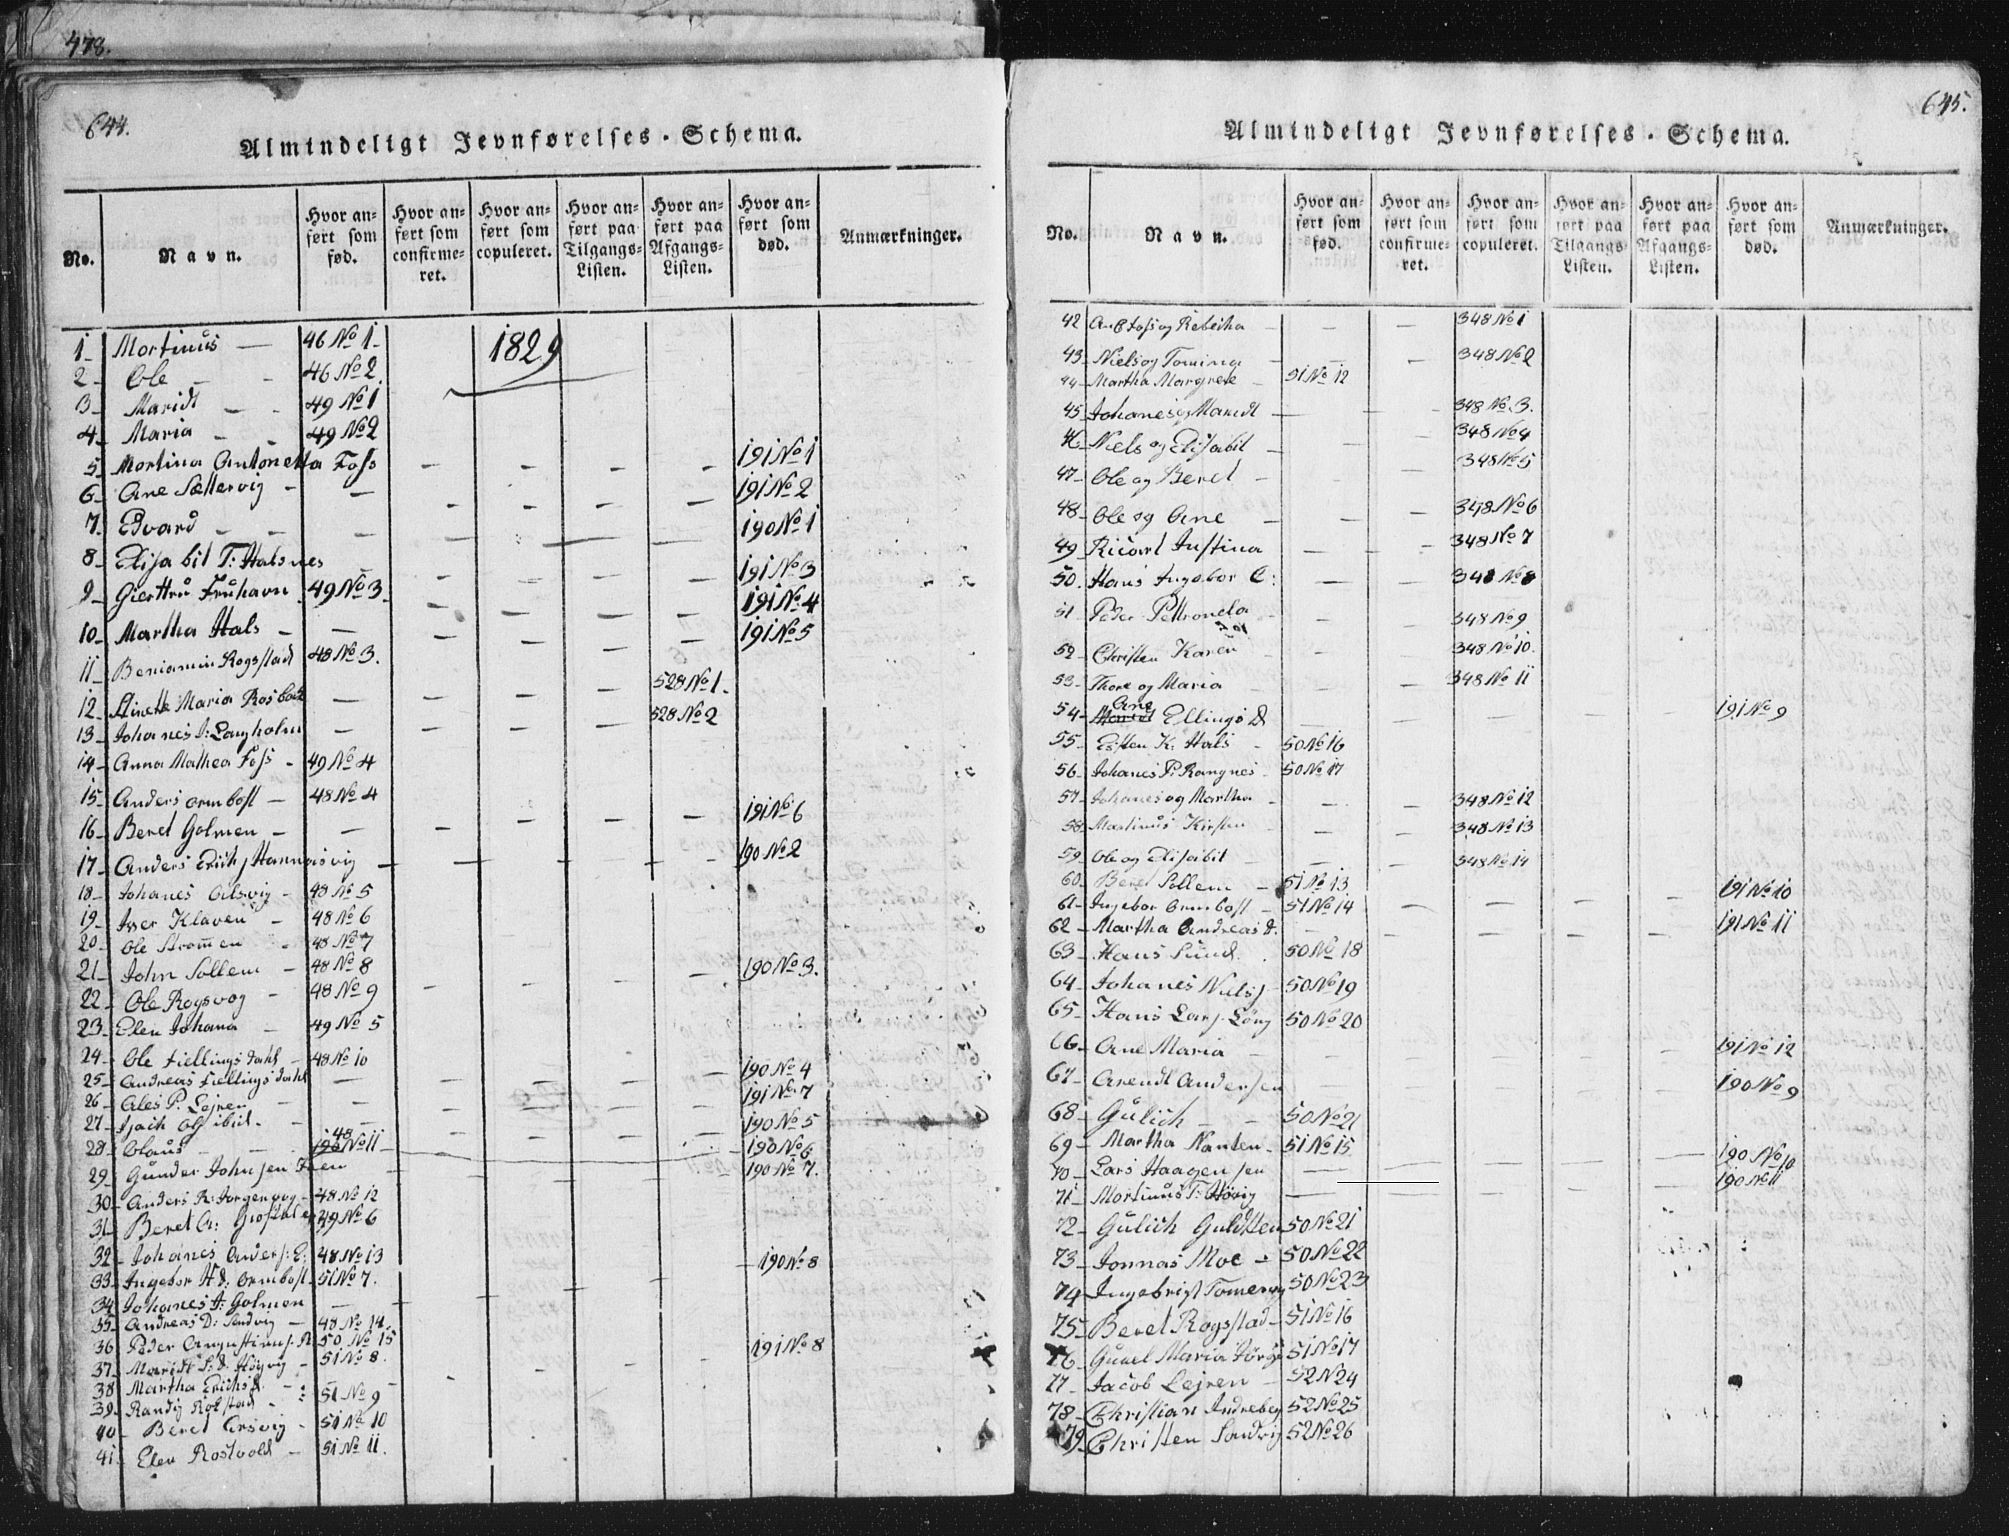 478.
644.
Almindeligt Jevnførelses-Schema.
No. Navn. Hvor anført som fød. Hvor anført som confirmeret. Hvor anført som copuleret. Hvor anført paa Tilgangs-Listen. Hvor anført paa Afgangs-Listen. Hvor anført som død. Anmærkninger.
1829
1 Mortinus — 46 No 1
2 Ole — 46 No 2
3 Maridt — 49 No 1
4 Maria — 49 No 2
5 Mortina Antonetta Foss — 191 No 1
6 Ane Sættervig — 191 No 2
7 Edvard — 190 No 1
8 Elisabit T: Halsnes — 191 No 3
9 Giertru Fruhavn 49 No 3 — 191 No 4
10 Martha Hals — 191 No 5
11 Beniamin Rogstad 48 No 3.
12 Maria — 528 No 1
13 Johanes J: Langholm — 528 No 2
14 Anna Mathea Foss 49 No 4
15 Anders ormbost — 48 No 4
16 Beret Golmen — 191 No 6
17 Anders — 190 No 2
18 Johanes — 48 No 5
19 Iver Klaven — 48 No 6
20 Ole Strømmen 48 No 7
21 John Sollem — 48 No 8 190 No 3.
22 Ole Rogsvog — 48 No 9
23 Elen Johana — 49 No 5
24 Ole fiellingsdahl — 48 No 10
25 Andreas fiellingsdahl — 190 No 4
26 Ales P. Lejren — 191 No 7
27 ibid. — 190 No 5
28 Olaus — 48 No 11 190 No 6
29 Gunder Johnsen — 190 No 7.
30 Anders 48 No 12
31 Beret A: 49 No 6
32 Johanes Anders: E: 48 No 13
33 Ingebor H d: ormbost 51 No 7.
34 Johanes J: Golmen — 190 No 8
35 Andreas D: Sandvig — 48 No 14
36 Peder 50 No 15
37 Maridt 51 No 8.
38 Martha — 191 No 8
39 Randi 51 No 9
40 Beret 51 No 10
41 Elen Rostvold — 51 No 11.
645.
Almindeligt Jevnførelses-Schema.
No. Navn. Hvor anført som fød. Hvor anført som confirmeret. Hvor anført som copuleret. Hvor anført paa Tilgangs Listen. Hvor anført paa Afgangs-Listen. Hvor anført som død. Anmærkninger.
42 og Rebecka — 348 No 1
43 Niels og — 348 No 2
44 Martha Margrete 51 No 12
45 Johanes og Maridt — 348 No 3.
46 Niels og Elisabit — 348 No 4
47 Ole og Beret — 348 No 5
48 Ole og Ane — 348 No 6
49 Ricart Justina — 348 No 7
50 Hans Ingebor C: — 348 No 8
51 Peder Petronela — 348 No 9
52 Christen Karen — 348 No 10.
53 Thore og Maria — 348 No 11
54 Ane Ellings D — 191 No 9
55 Esten K: Hals — 50 No 16
56 Johanes P: Rangnes 50 No 17
57 Johanes og Martha — 348 No 12
58 Martinus Kirsten — 348 No 13
59 Ole og Elisabit — 348 No 14
60 Beret Sollem — 51 No 13
61 Ingebor ormbost — 51 No 14 191 No 10
62 Martha Andreas d. — 191 No 11
63 Hans Sund. 50 No 18
64 Johanes Niels 50 No 19
65 Hans Lars: 50 No 20
66 Ane Maria — 191 No 12
67 Arendt Andersen — 190 No 9
68 Gulich — 50 No 21
69 Martha Nanten 51 No 15
70 Lars Haagensen — 190 No 10
71 Mortinus T: — 190 No 11
72 Gulich 50 No 21
73 Jonnas Moe — 50 No 22
74 Ingebrigt 50 No 23
75 Beret Rogstad 51 No 16
76 Gunel Maria 51 No 17
77 Jacob Lejren — 52 N 24
78 Christian 52 No 25
79 Christen Sandvig 52 No 26